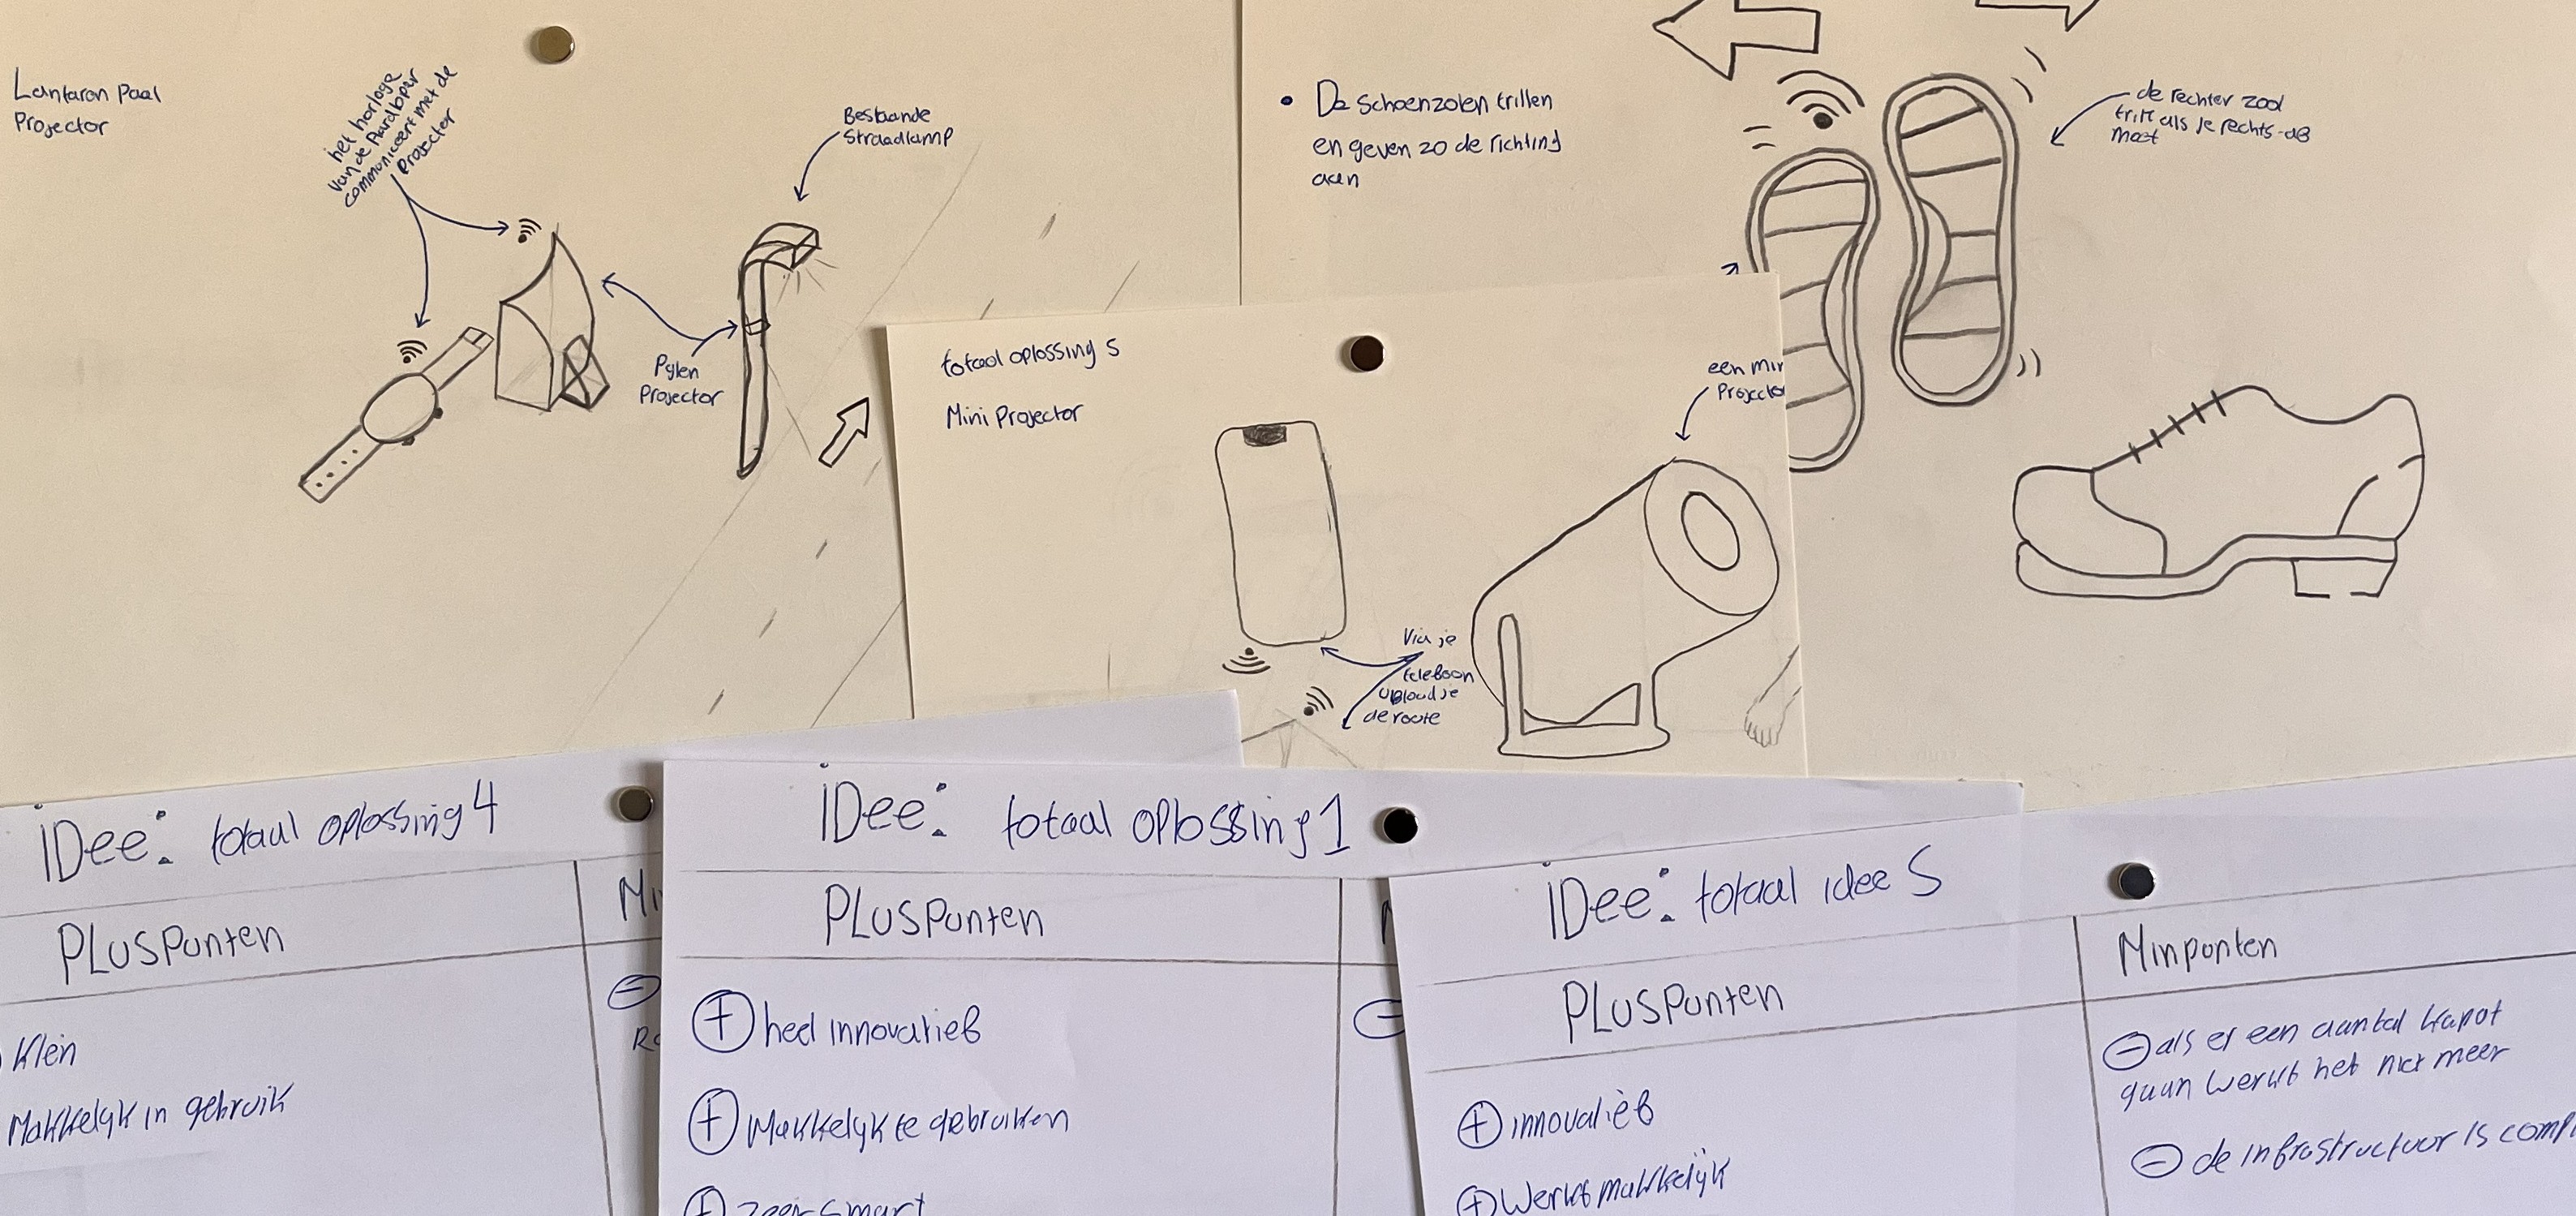 Lantaron Paal
Projector
het horloge
van de Hardloper
communiceert met de
Projector
Bestaande
Straadlamp
Pylen
Projector
• De schoenzolen trillen
en geven zo de richting
aan
de rechter zool
trilt als je rechts-af
moet
totaal oplossing 5
Mini Projector
een min
Projector
Via je
telefoon
upload je
de route
iDee: totaal oplossing 4
PLUSPunten
Mi
Klein
Makkelyk in gebruik
iDee: totaal oplossing 1
PLUSPunten
+ heel innovatief
+ Makkelyk te gebruiken
+ zeer smart
iDee: totaal idee 5
PLUSPunten
Minpunten
+ innovatief
+ Werkt makkelijk
- als er een aantal kapot
gaan werkt het niet meer
- de infrastructuur is compl